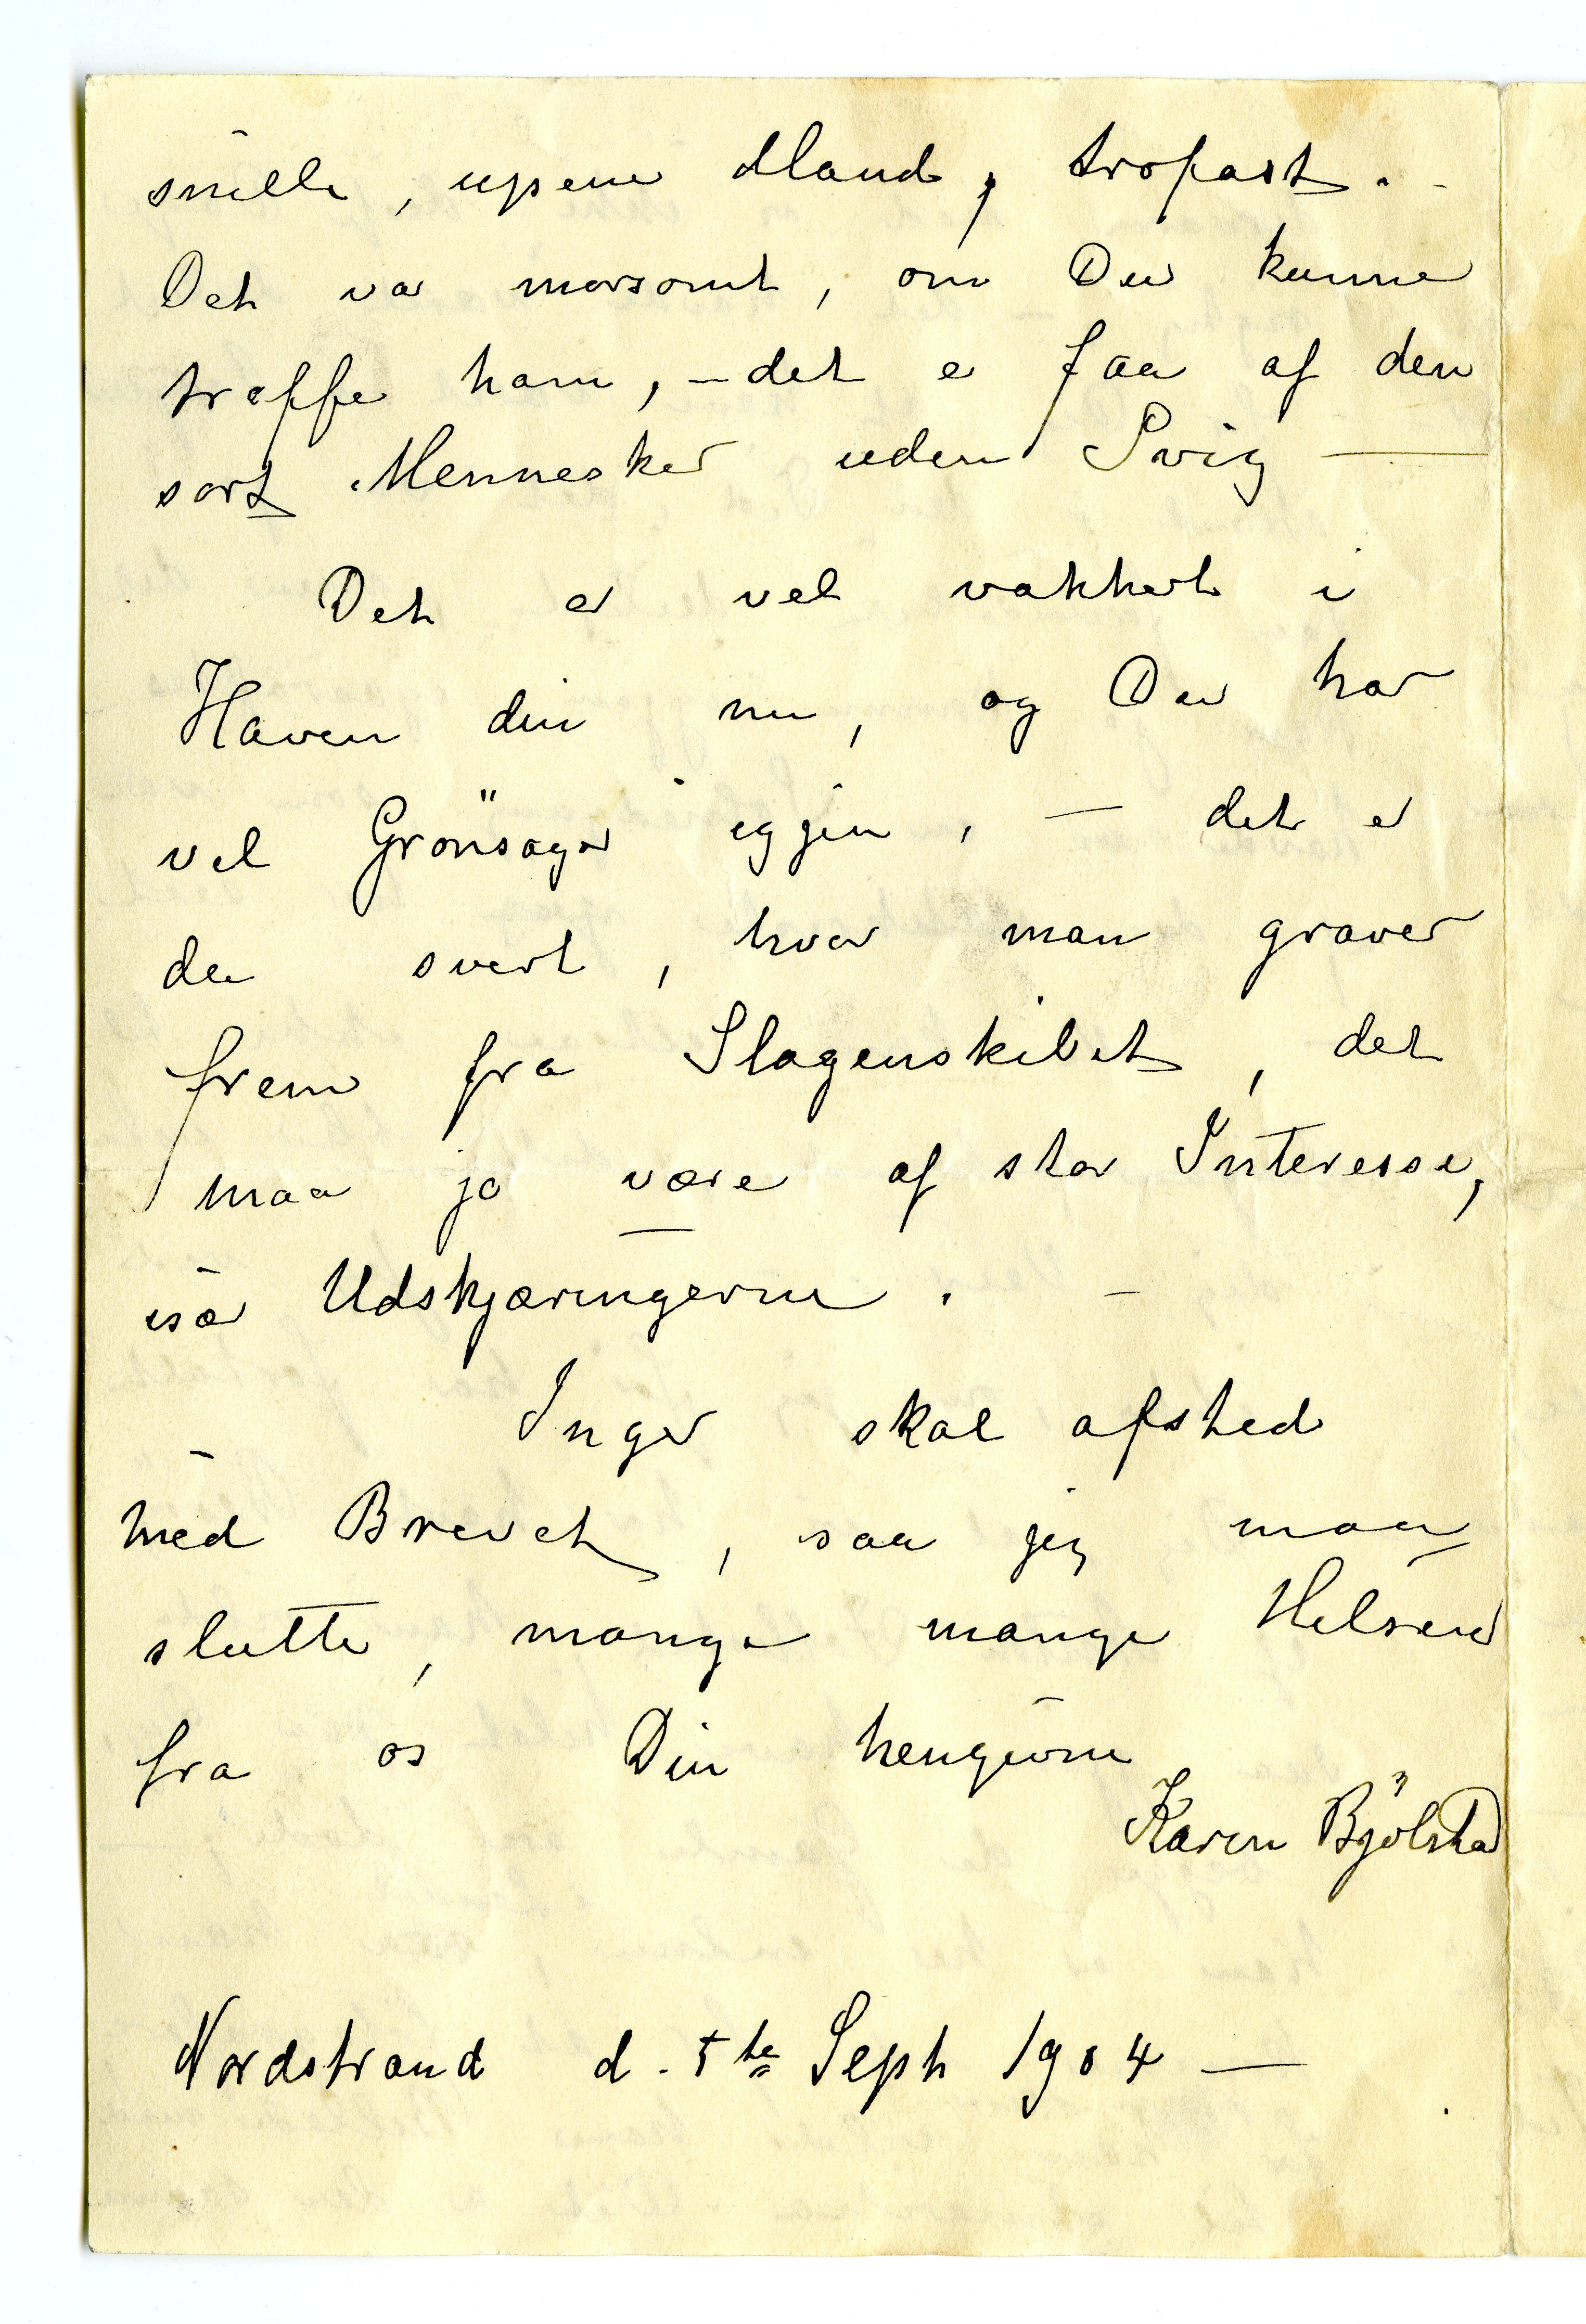 snille, upene Mand, trofast. -
Det var morsomt, om Du kunne
træffe ham, - det er faa af den
sort Mennesker uden Svig —
Det er vel vakkert i
Haven din nu, og Du har
vel Grönsager igjen, — det er
da svert, hvor man graver
frem fra Slagenskibet, det
maa ja være af stor Interesse,
især Udskjæringerne. -
Inger skal afsted
med Brevet, saa jeg maa
slutte, mange mange Helsener
fra os Din hengivne
Karen Bjölstad
Nordstrand d. 5te Sept 1904 —